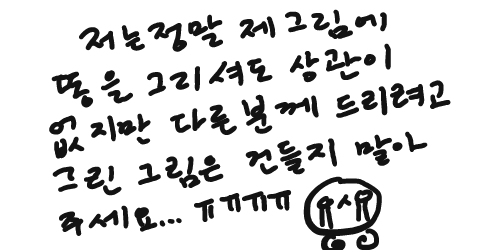 저는정말 제그림에
똥을 그리셔도 상관이
없지만 다른분께 드리려고
그린 그림은 건들지 말아
주세요... ㅠㅠㅠㅠ